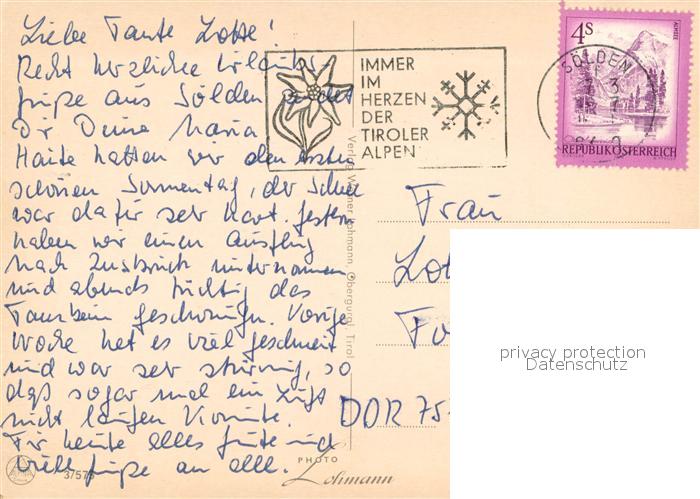 Liebe Tante Lotte!
Recht herzliche Urlaubs-
grüße aus Sölden sendet
Dir Deine Maria
Heute hatten wir den ersten
schönen Sonnentag, der Schnee
war dafür sehr hart. Gestern
haben wir einen Ausflug
nach Innsbruck unternommen
und abends tüchtig das
Tanzbein geschwungen. Vorige
Woche hat es viel geschneit
und war sehr stürmig, so
daß sogar mal ein Lift
nicht laufen konnte.
Für heute alles Gute und
viele Grüße an alle.
IMMER
IM
HERZEN
DER
TIROLER
ALPEN
4S
ALMSEE
SÖLDEN
REPUBLIK ÖSTERREICH
Verlag Werner Lohmann, Obergurgl, Tirol
Frau
DDR 75
privacy protection
Datenschutz
PHOTO
Lohmann